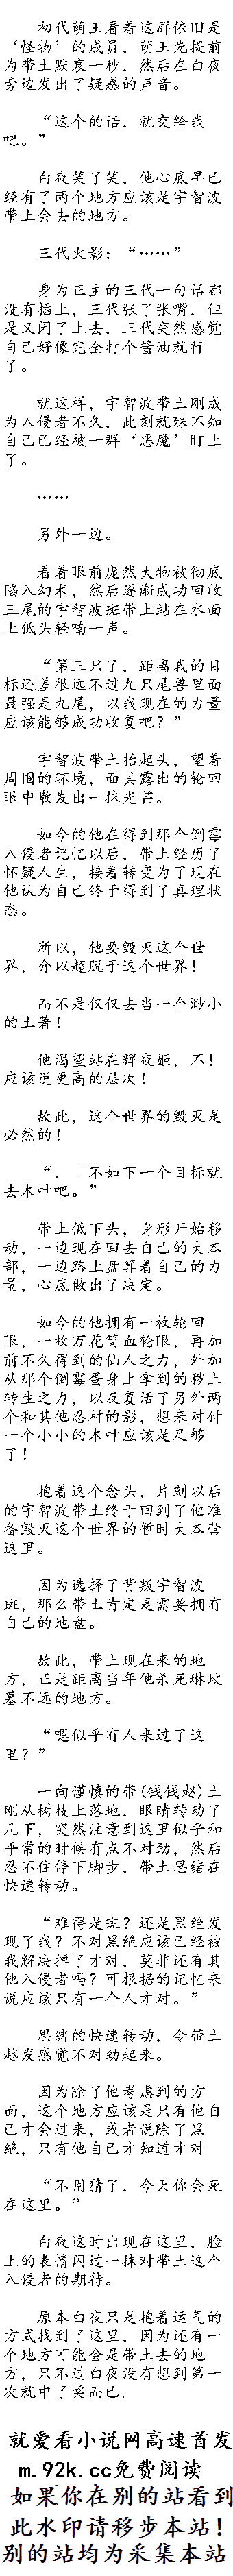 初代萌王看着这群依旧是
‘怪物’的成员，萌王先提前
为带土默哀一秒，然后在白夜
旁边发出了疑惑的声音。
“这个的话，就交给我
吧。”
白夜笑了笑，他心底早已
经有了两个地方应该是宇智波
带土会去的地方。
三代火影：“……”
身为正主的三代一句话都
没有插上，三代张了张嘴，但
是又闭了上去，三代突然感觉
自己好像完全打个酱油就行
了。
就这样，宇智波带土刚成
为入侵者不久，此刻就殊不知
自己已经被一群‘恶魔’盯上
了。
……
另外一边。
看着眼前庞然大物被彻底
陷入幻术，然后逐渐成功回收
三尾的宇智波斑带土站在水面
上低头轻喃一声。
“第三只了，距离我的目
标还差很远不过九只尾兽里面
最强是九尾，以我现在的力量
应该能够成功收复吧？”
宇智波带土抬起头，望着
周围的环境，面具露出的轮回
眼中散发出一抹光芒。
如今的他在得到那个倒霉
入侵者记忆以后，带土经历了
怀疑人生，接着转变为了现在
他认为自己终于得到了真理状
态。
所以，他要毁灭这个世
界，介以超脱于这个世界！
而不是仅仅去当一个渺小
的土著！
他渴望站在辉夜姬，不！
应该说更高的层次！
故此，这个世界的毁灭是
必然的！
“．「不如下一个目标就
去木叶吧。”
带土低下头，身形开始移
动，一边现在回去自己的大本
部，一边路上盘算着自己的力
量，心底做出了决定。
如今的他拥有一枚轮回
眼，一枚万花筒血轮眼，再加
前不久得到的仙人之力，外加
从那个倒霉蛋身上拿到的秽土
转生之力，以及复活了另外两
个和其他忍村的影，想来对付
一个小小的木叶应该是足够
了！
抱着这个念头，片刻以后
的宇智波带土终于回到了他准
备毁灭这个世界的暂时大本营
这里。
因为选择了背叛宇智波
斑，那么带土肯定是需要拥有
自己的地盘。
故此，带土现在来的地
方，正是距离当年他杀死琳坟
墓不远的地方。
“嗯似乎有人来过了这
里？”
一向谨慎的带(钱钱赵)土
刚从树枝上落地，眼睛转动了
几下，突然注意到这里似乎和
平常的时候有点不对劲，然后
忍不住停下脚步，带土思绪在
快速转动。
“难得是斑？还是黑绝发
现了我？不对黑绝应该已经被
我解决掉了才对，莫非还有其
他入侵者吗？可根据的记忆来
说应该只有一个人才对。”
思绪的快速转动，令带土
越发感觉不对劲起来。
因为除了他考虑到的方
面，这个地方应该是只有他自
己才会过来，或者说除了黑
绝，只有他自己才知道才对
“不用猜了，今天你会死
在这里。”
白夜这时出现在这里，脸
上的表情闪过一抹对带土这个
入侵者的期待。
原本白夜只是抱着运气的
方式找到了这里，因为还有一
个地方可能会是带土去的地
方，只不过白夜没有想到第一
次就中了奖而已.
就爱看小说网高速首发
m.92k.cc免费阅读
如果你在别的站看到
此水印请移步本站！
别的站均为采集本站